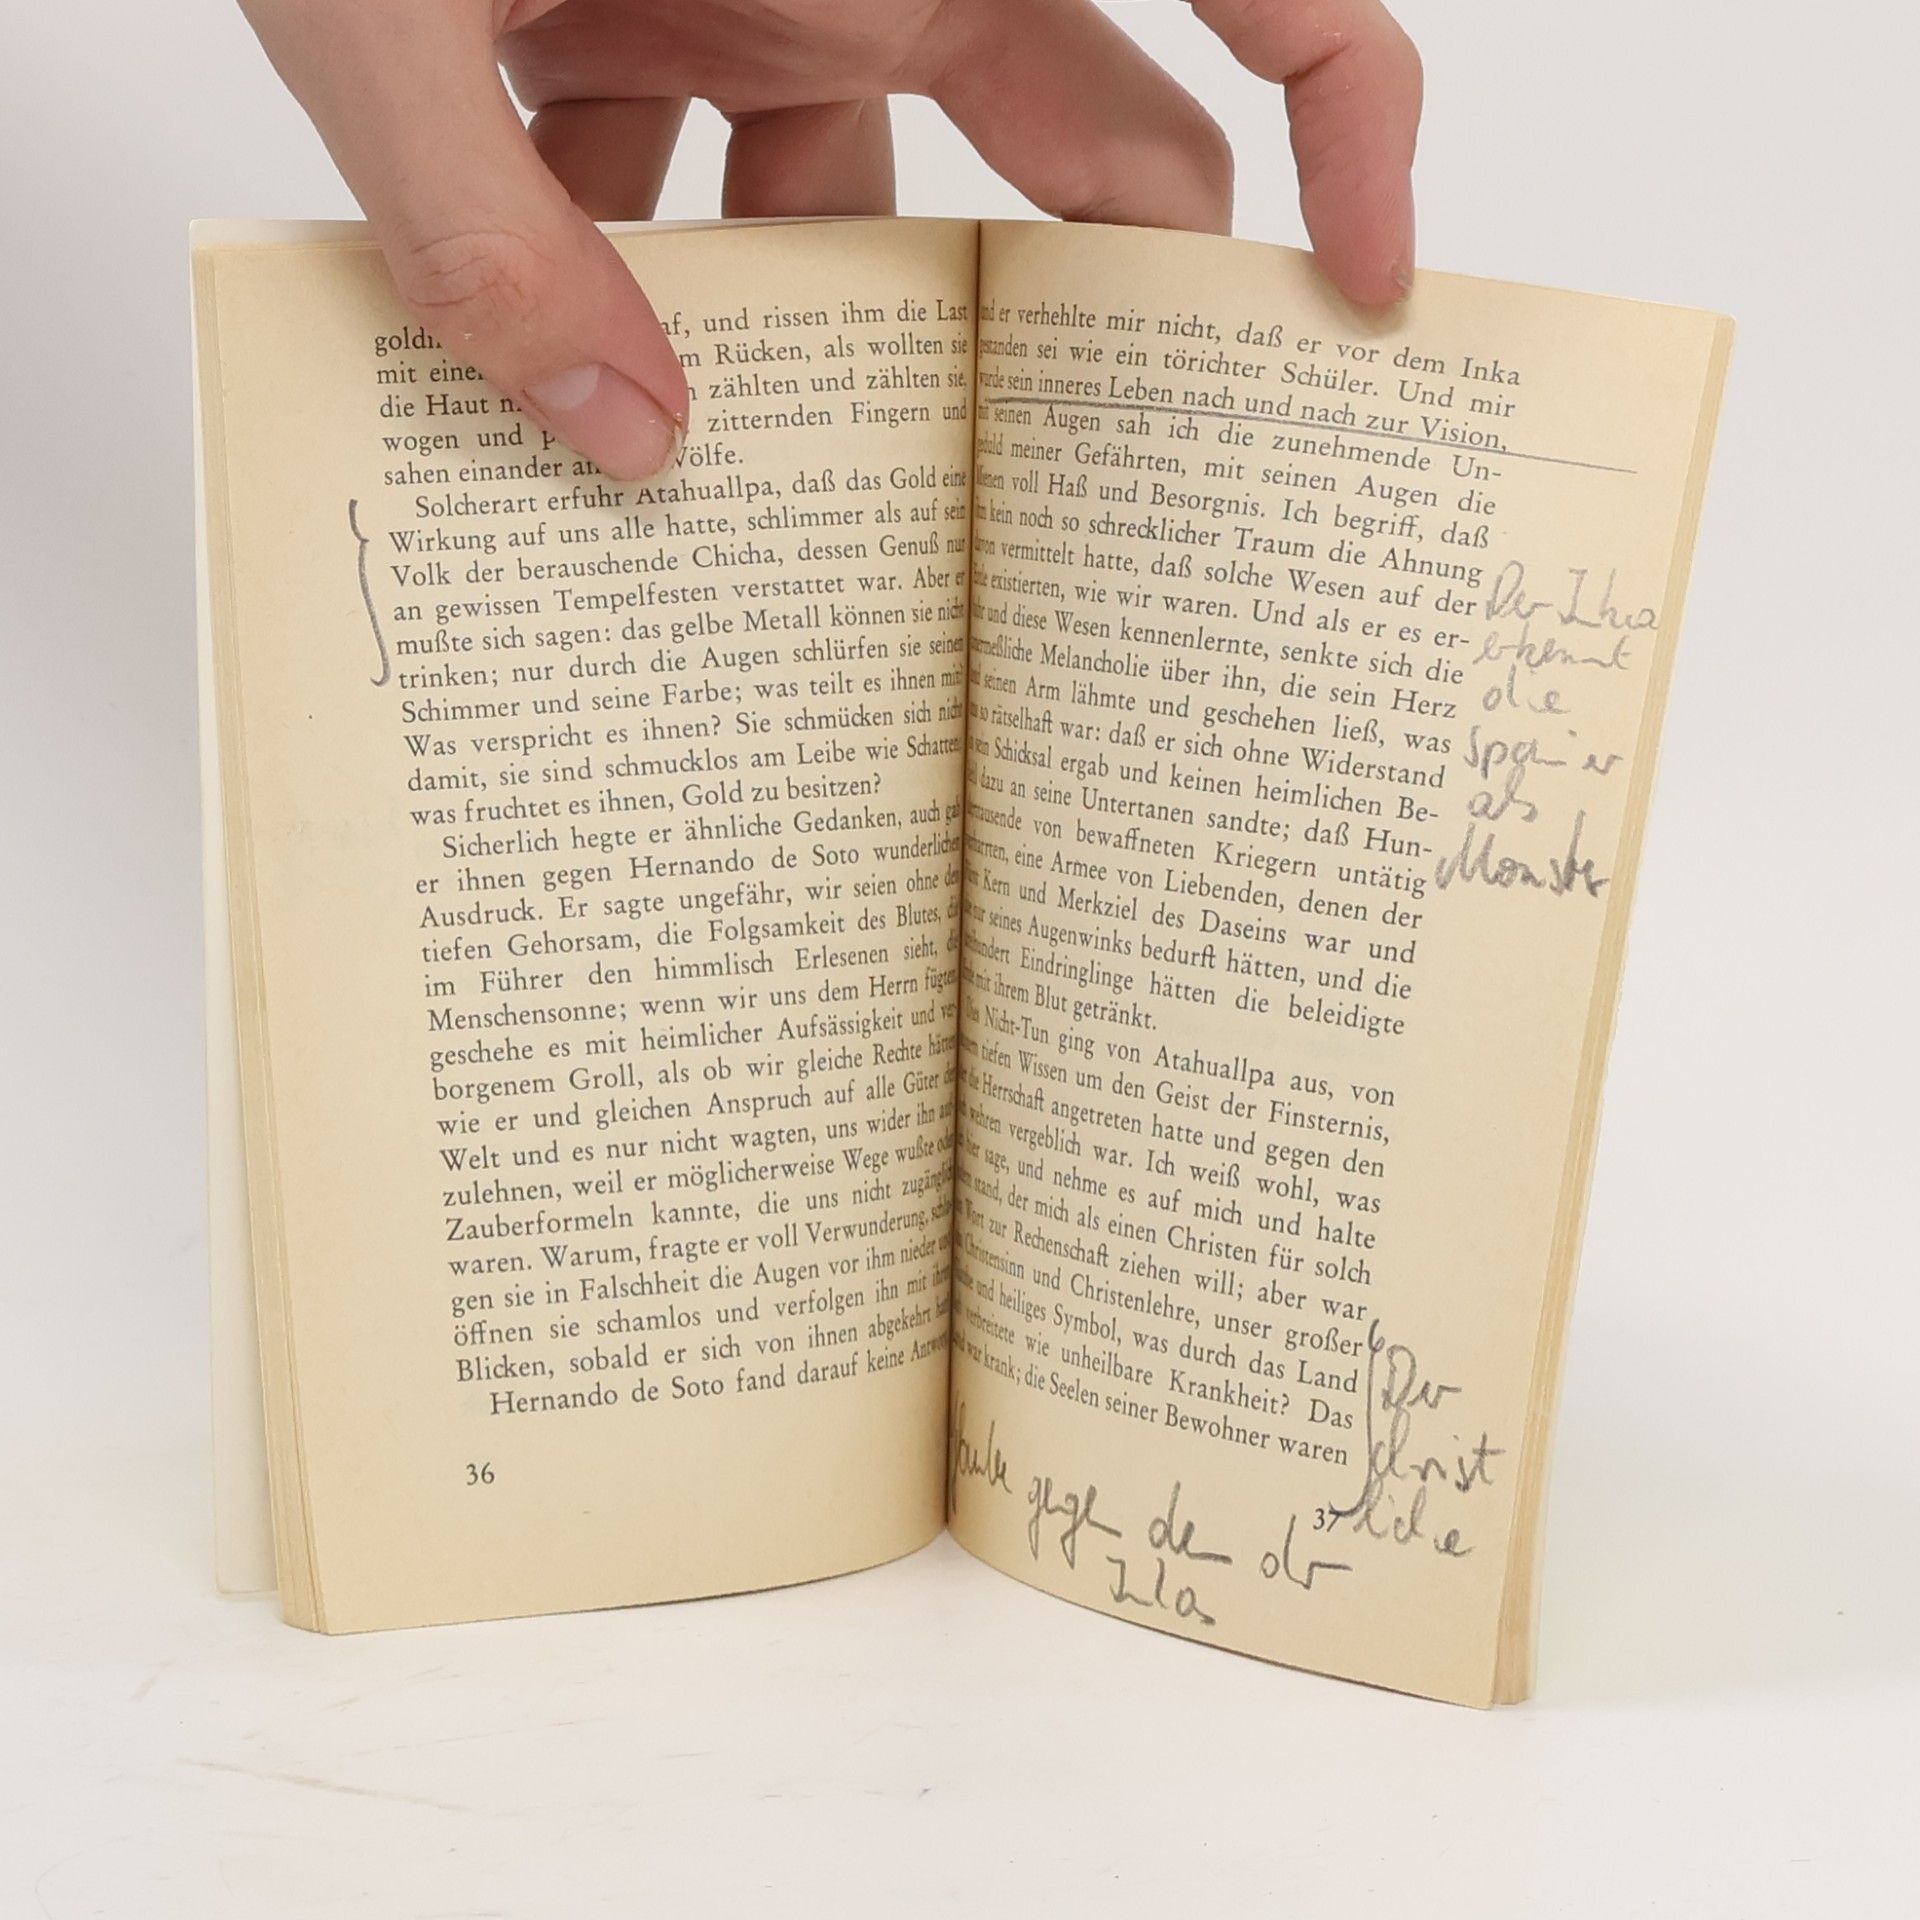 af, und rissen ihm die Last
mit Rücken, als wollten sie
die Haut zählten und zählten sie,
wogen und zitternden Fingern und
sahen einander Wölfe.
Solcherart erfuhr Atahuallpa, daß das Gold eine
Wirkung auf uns alle hatte, schlimmer als auf sein
Volk der berauschende Chicha, dessen Genuß nur
an gewissen Tempelfesten verstattet war. Aber er
mußte sich sagen: das gelbe Metall können sie nicht
trinken; nur durch die Augen schlürfen sie seinen
Schimmer und seine Farbe; was teilt es ihnen mit?
Was verspricht es ihnen? Sie schmücken sich nicht
damit, sie sind schmucklos am Leibe wie Schatten;
was fruchtet es ihnen, Gold zu besitzen?
Sicherlich hegte er ähnliche Gedanken, auch gab
er ihnen gegen Hernando de Soto wunderlichen
Ausdruck. Er sagte ungefähr, wir seien ohne den
tiefen Gehorsam, die Folgsamkeit des Blutes, die
im Führer den himmlisch Erlesenen sieht, die
Menschensonne; wenn wir uns dem Herrn fügten,
geschehe es mit heimlicher Aufsässigkeit und ver-
borgenem Groll, als ob wir gleiche Rechte hätten
wie er und gleichen Anspruch auf alle Güter der
Welt und es nur nicht wagten, uns wider ihn auf-
zulehnen, weil er möglicherweise Wege wußte oder
Zauberformeln kannte, die uns nicht zugänglich
waren. Warum, fragte er voll Verwunderung, schla-
gen sie in Falschheit die Augen vor ihm nieder und
öffnen sie schamlos und verfolgen ihn mit ihren
Blicken, sobald er sich von ihnen abgekehrt hat?
Hernando de Soto fand darauf keine Antwort,
36
und er verhehlte mir nicht, daß er vor dem Inka
gestanden sei wie ein törichter Schüler. Und mir
wurde sein inneres Leben nach und nach zur Vision,
mit seinen Augen sah ich die zunehmende Un-
geduld meiner Gefährten, mit seinen Augen die
Mienen voll Haß und Besorgnis. Ich begriff, daß
ihm kein noch so schrecklicher Traum die Ahnung
davon vermittelt hatte, daß solche Wesen auf der
Erde existierten, wie wir waren. Und als er es er-
fuhr und diese Wesen kennenlernte, senkte sich die
unermeßliche Melancholie über ihn, die sein Herz
und seinen Arm lähmte und geschehen ließ, was
uns so rätselhaft war: daß er sich ohne Widerstand
in sein Schicksal ergab und keinen heimlichen Be-
fehl dazu an seine Untertanen sandte; daß Hun-
derttausende von bewaffneten Kriegern untätig
verharrten, eine Armee von Liebenden, denen der
Fürst Kern und Merkziel des Daseins war und
die nur seines Augenwinks bedurft hätten, und die
dreihundert Eindringlinge hätten die beleidigte
Erde mit ihrem Blut getränkt.
Dies Nicht-Tun ging von Atahuallpa aus, von
seinem tiefen Wissen um den Geist der Finsternis,
der die Herrschaft angetreten hatte und gegen den
sich wehren vergeblich war. Ich weiß wohl, was
ich hier sage, und nehme es auf mich und halte
jedem stand, der mich als einen Christen für solch
ein Wort zur Rechenschaft ziehen will; aber war
es Christensinn und Christenlehre, unser großer
Glaube und heiliges Symbol, was durch das Land
sich verbreitete wie unheilbare Krankheit? Das
Land war krank; die Seelen seiner Bewohner waren
37
Der Inka
erkennt
die
Spanier
als
Monster
Der
christ
liche
Glaube gegen den der
Inkas